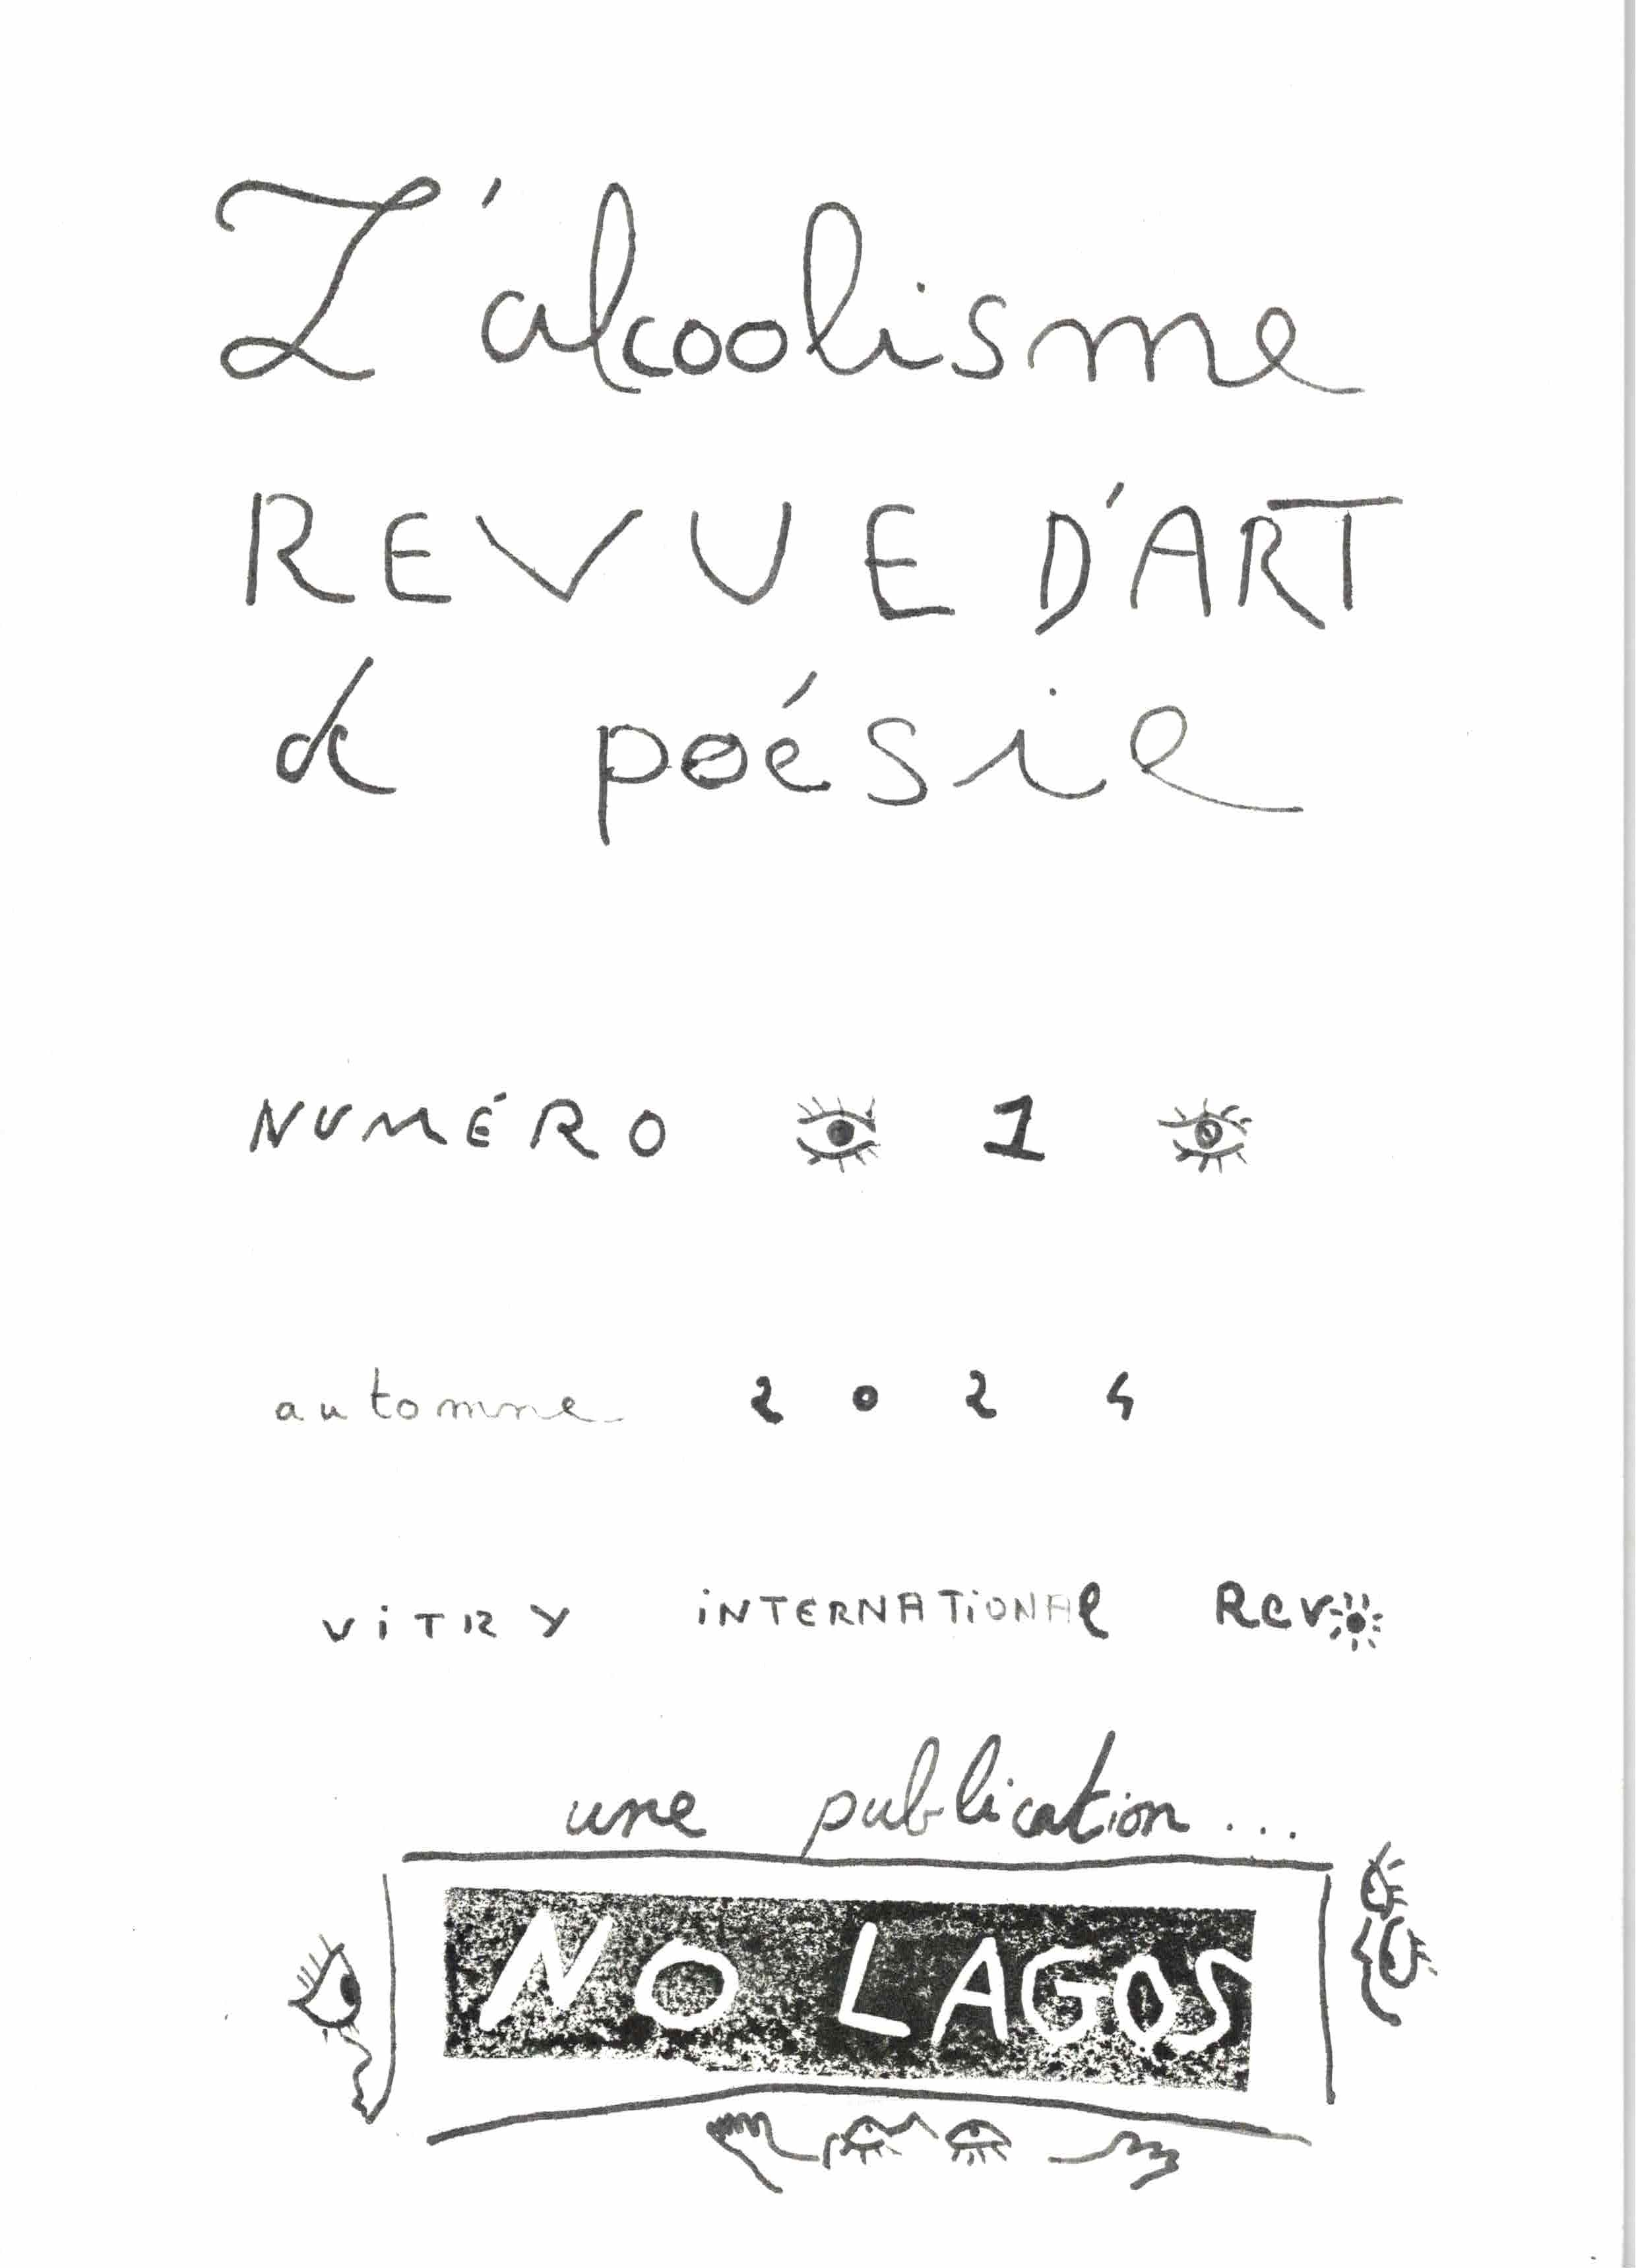 L'alcoolisme
REVUE D'ART
de poésie
NUMÉRO 1
automne 2024
ViTRY iNTERNATiONAl Revo
une publication...
NO LAGOS